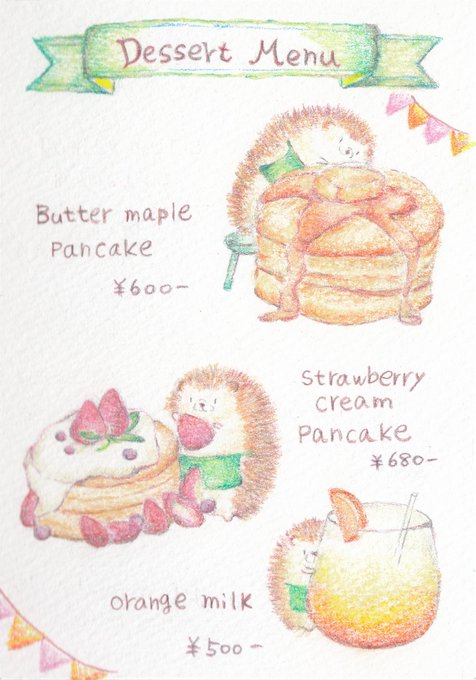 Dessert Menu
Butter maple
Pancake
¥600-
Strawberry
Cream
Pancake
¥680-
orange milk
¥500-